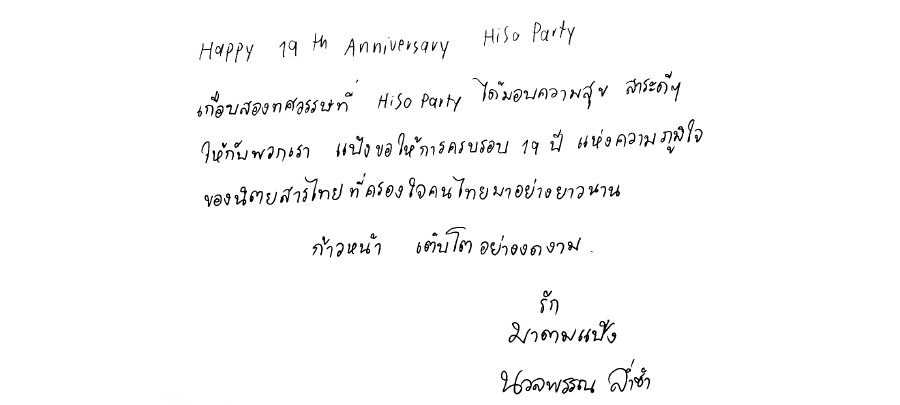 Happy 19 th Anniversary HiSo Party
เกือบสองทศวรรษที่ HiSo Party ได้มอบความสุข สาระดีๆ
ให้กับพวกเรา แป้งขอให้การครบรอบ 19 ปี แห่งความภูมิใจ
ของนิตยสารไทยที่ครองใจคนไทยมาอย่างยาวนาน
ก้าวหน้า เติบโตอย่างงดงาม.
รัก
มาดามแป้ง
นวลพรรณ ล่ำซำ